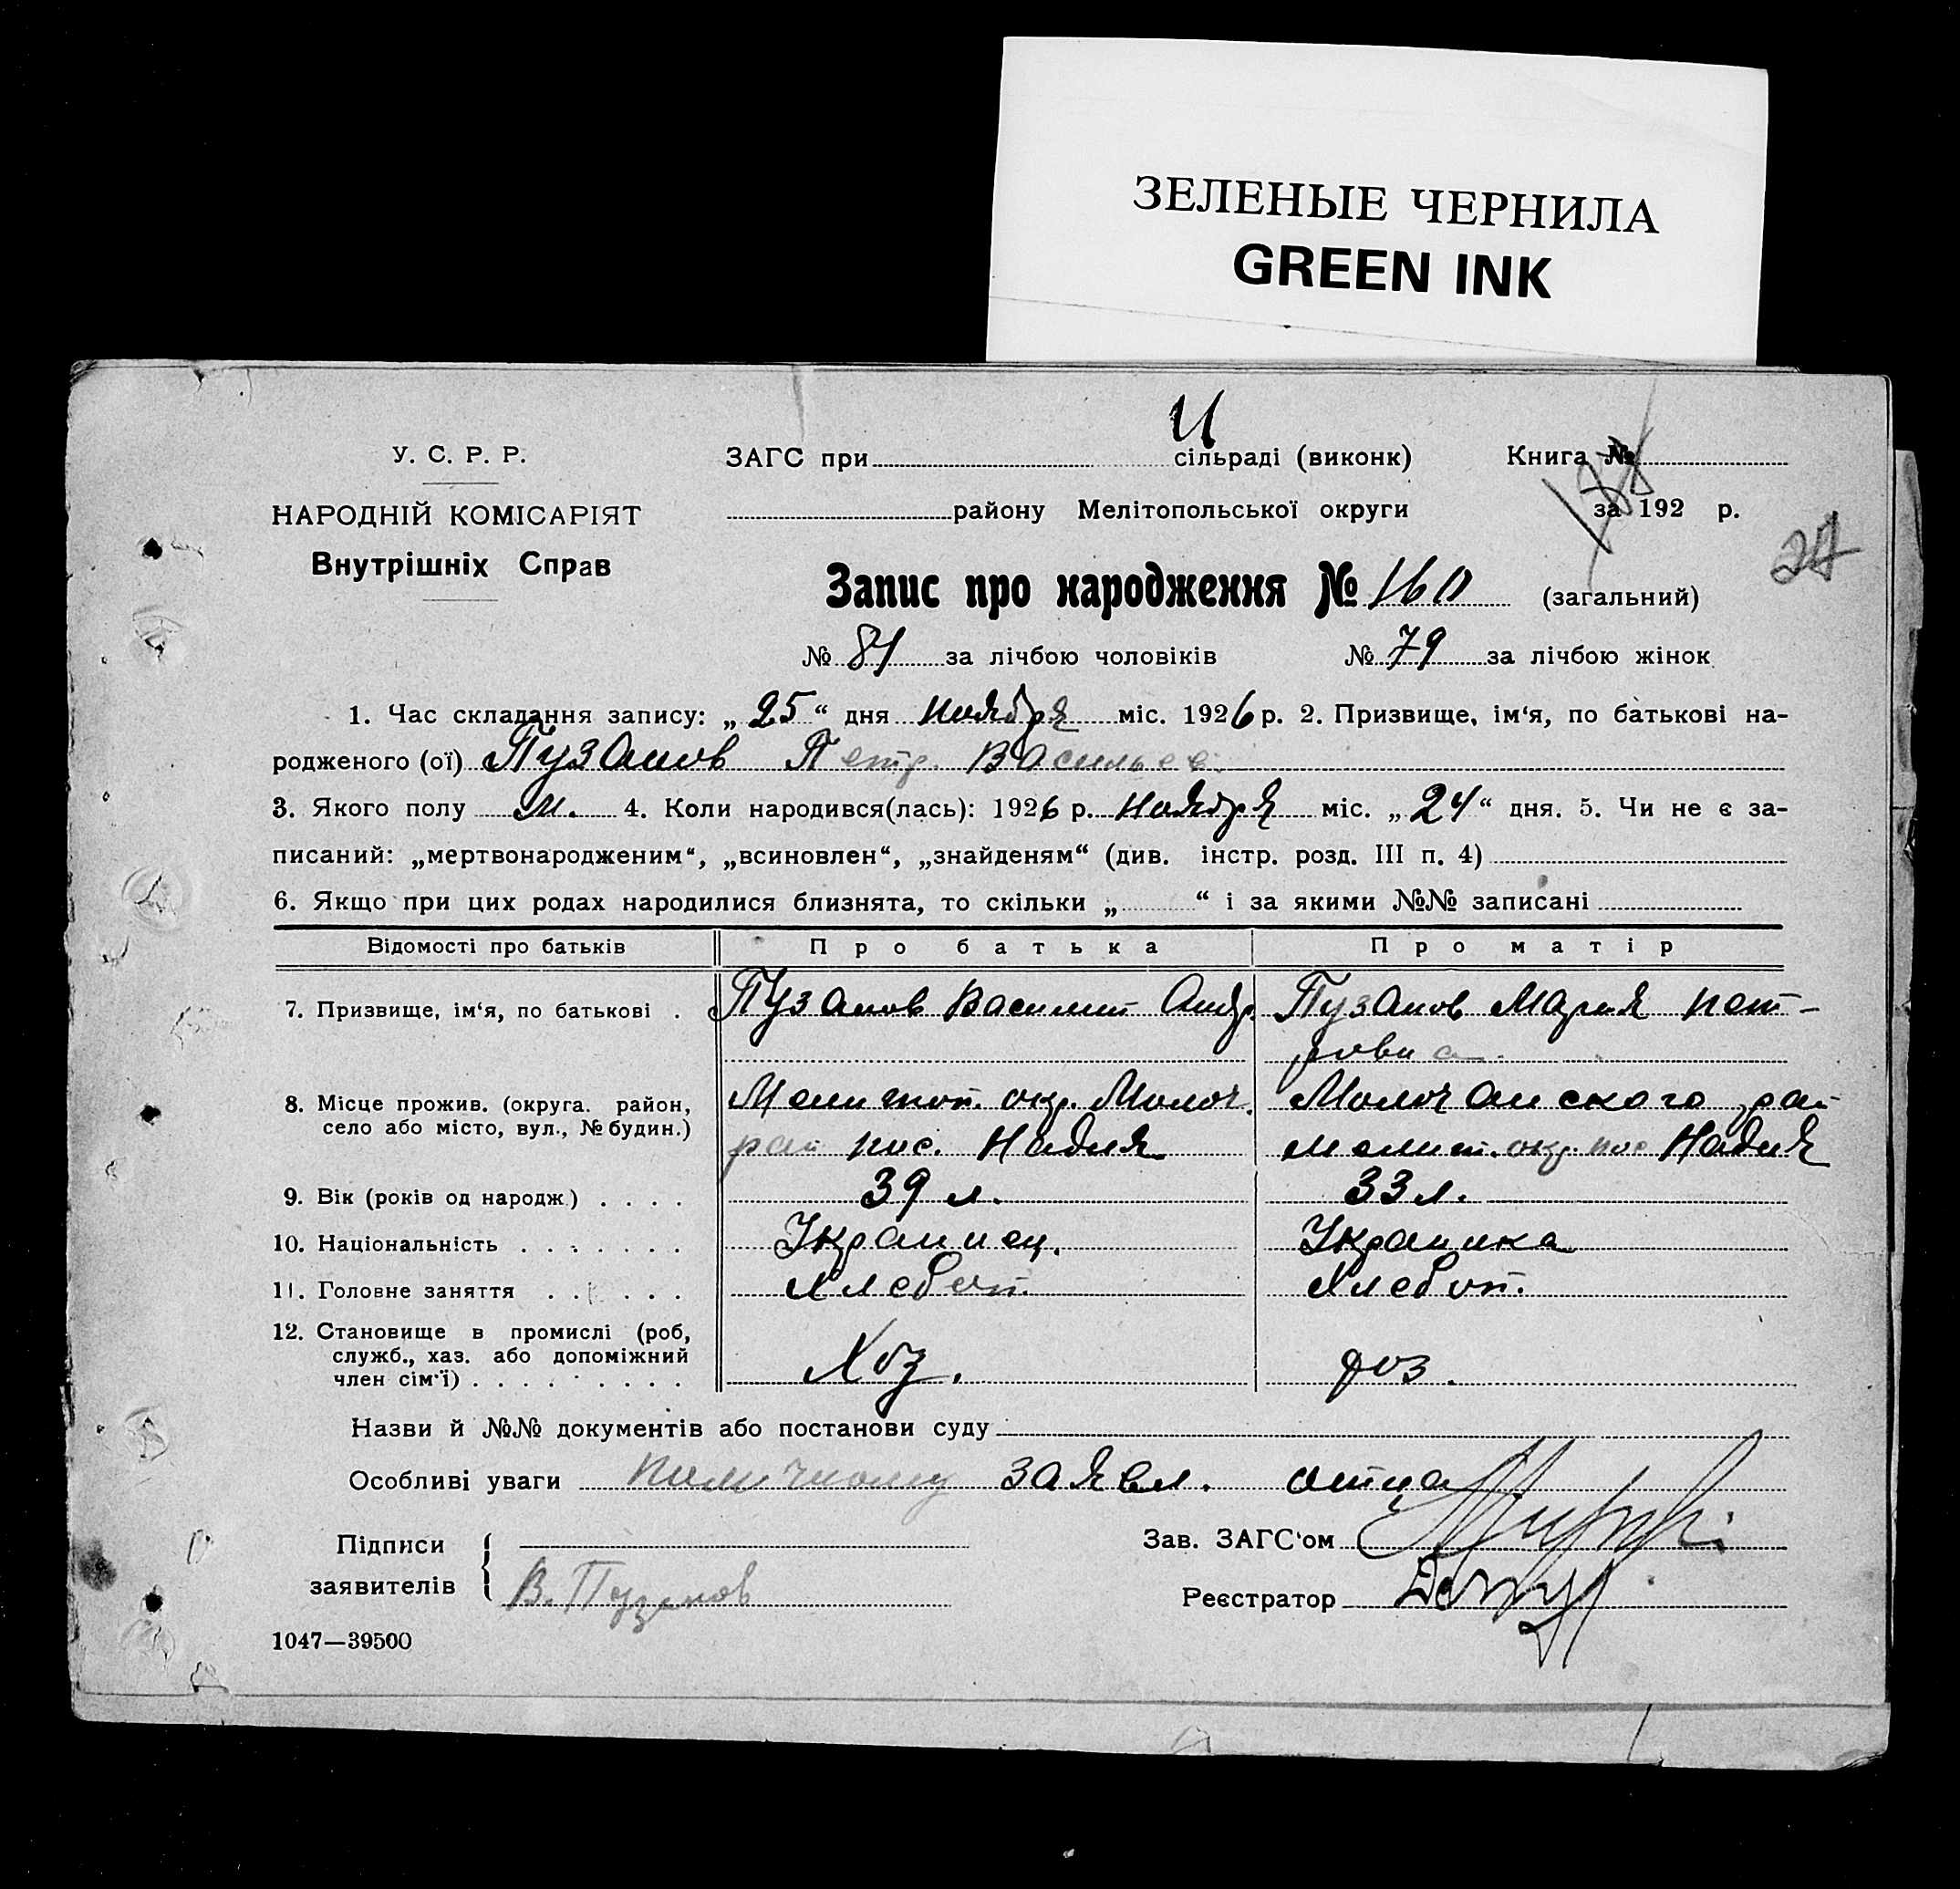 ЗЕЛЕНЫЕ ЧЕРНИЛА
GREEN INK
У. С. Р. Р.
НАРОДНІЙ КОМІСАРІЯТ
Внутрішніх Справ
И
ЗАГС при сільраді (виконк) Книга №
району Мелітопольської округи за 192 р.
27
Запис про народження № 160 (загальний)
№ 81 за лічбою чоловіків № 79 за лічбою жінок
1. Час складання запису: „25“ дня ноября міс. 1926 р. 2. Призвище, ім‘я, по батькові на-
родженого (ої) Пузанов Петр. Васильев.
3. Якого полу м. 4. Коли народився(лась): 1926 р. ноября міс. „24“ дня. 5. Чи не є за-
писаний: „мертвонародженим“, „всиновлен“, „знайденям“ (див. інстр. розд. III п. 4)
6. Якщо при цих родах народилися близнята, то скільки „ “ і за якими №№ записані
Відомості про батьків Про батька Про матір
7. Призвище, ім‘я, по батькові . Пузанов Василий Андр. Пузанов Мария Пет-
ровна
8. Місце прожив. (округа. район, Мелитоп. окр. Молоч. Молочанского рай
село або місто, вул., № будин.) рай пос. Надия мелит. окр. пос Надия
9. Вік (років од народж.) . . . . 39 л. 33 л.
10. Національність . . . . . . . Украинец. Украинка
11. Головне заняття . . . . . . Хлебоп. Хлебоп.
12. Становище в промислі (роб,
служб., хаз. або допоміжний Хоз. хоз.
член сім‘ї) . . . . . . . . .
Назви й №№ документів або постанови суду
Особливі уваги по личному заявл. отца
Підписи Зав. ЗАГС‘ом
заявителів В. Пузанов Реєстратор
1047—39500